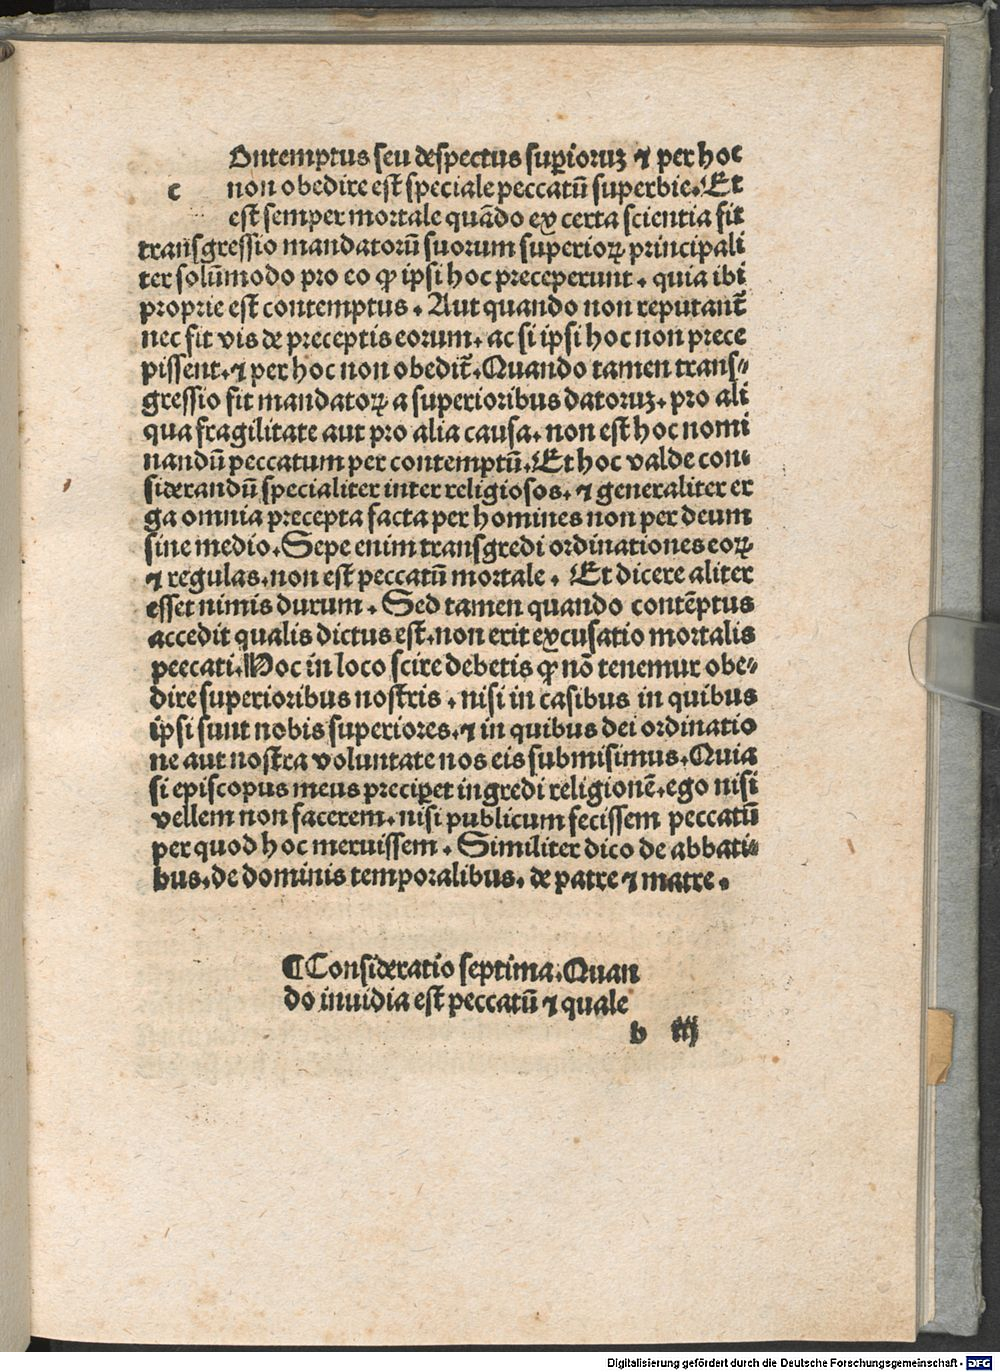 Ontemptus seu despectus supꝑiorꝝ ⁊ per hoc
c non obedire est speciale peccatū superbie. Et
est semper mortale quādo ex certa scientia fit
transgressio mandatorū suorum superioꝝ principali
ter solūmodo pro eo ꝙ ipsi hoc preceperunt. quia ibi
proprie est contemptus. Aut quando non reputant̄
nec fit vis de preceptis eorum. ac si ipsi hoc non prece
pissent. ⁊ per hoc non obedit̄. Quando tamen trans⸗
gressio fit mandatoꝝ a superioribus datoruꝫ. pro ali
qua fragilitate aut pro alia causa. non est hoc nomi
nandū peccatum per contemptū. Et hoc valde con⸗
siderandū specialiter inter religiosos. ⁊ generaliter er
ga omnia precepta facta per homines non per deum
sine medio. Sepe enim transgredi ordinationes eoꝝ
⁊ regulas. non est peccatū mortale. Et dicere aliter
esset nimis durum. Sed tamen quando contēptus
accedit qualis dictus est. non erit excusatio mortalis
peecati. Hoc in loco scire debetis ꝙ nō tenemur obe⸗
dire superioribus nostris. nisi in casibus in quibus
ipsi sunt nobis superiores. ⁊ in quibus dei ordinatio
ne aut nostra voluntate nos eis submisimus. Quia
si episcopus meus preciꝑet ingredi religionē. ego nisi
vellem non facerem. nisi publicum fecissem peccatū
per quod hoc meruissem. Similiter dico de abbati⸗
bus. de dominis temporalibus. de patre ⁊ matre.
¶ Consideratio septima. Quan
do inuidia est peccatū ⁊ quale
b iij
Digitalisierung gefördert durch die Deutsche Forschungsgemeinschaft - DFG